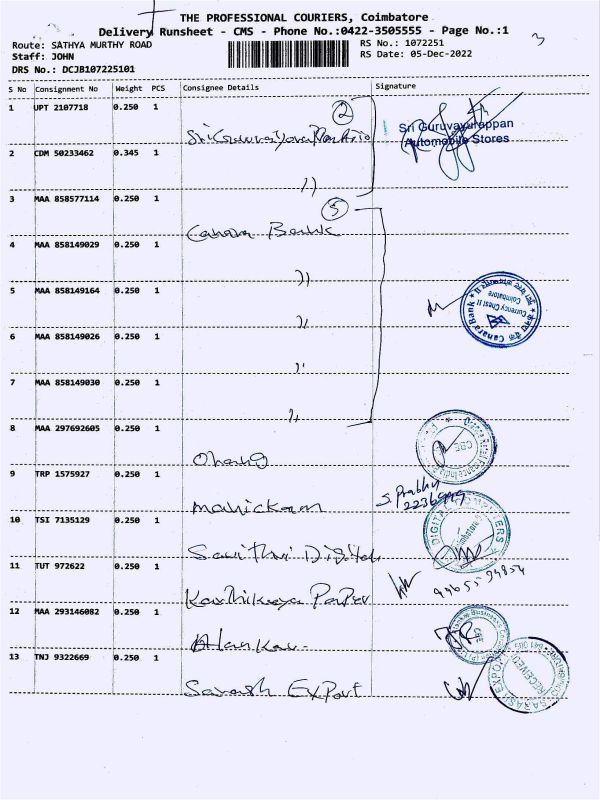 THE PROFESSIONAL COURIERS, Coimbatore
Delivery Runsheet - CMS - Phone No.:0422-3505555 - Page No.:1
Route: SATHYA MURTHY ROAD
RS No.: 1072251
Staff: JOHN
RS Date: 05-Dec-2022
DRS No.: DCJB107225101
3
S No Consignment No Weight PCS Consignee Details Signature
1 UPT 2107718 0.250 1
2
Sri Guruvayurappan
Automobile Stores
2 CDM 50233462 0.345 1
))
3 MAA 858577114 0.250 1
5
Canara Bank
4 MAA 858149029 0.250 1
))
5 MAA 858149164 0.250 1
Canara Bank
Currency Chest II
Coimbatore
6 MAA 858149026 0.250 1
7 MAA 858149030 0.250 1
8 MAA 297692605 1
CBE
9 TRP 1575927 0.250 1
Manickam
S. Prabhu
10 TSI 7135129 0.250 1
Savithri Digital
Coimbatore
11 TUT 972622 0.250 1
Karthikeya Paper
12 MAA 293146082 0.250 1
Alankar
CBE
13 TNJ 9322669 0.250 1
Sarash Export
RECEIVED